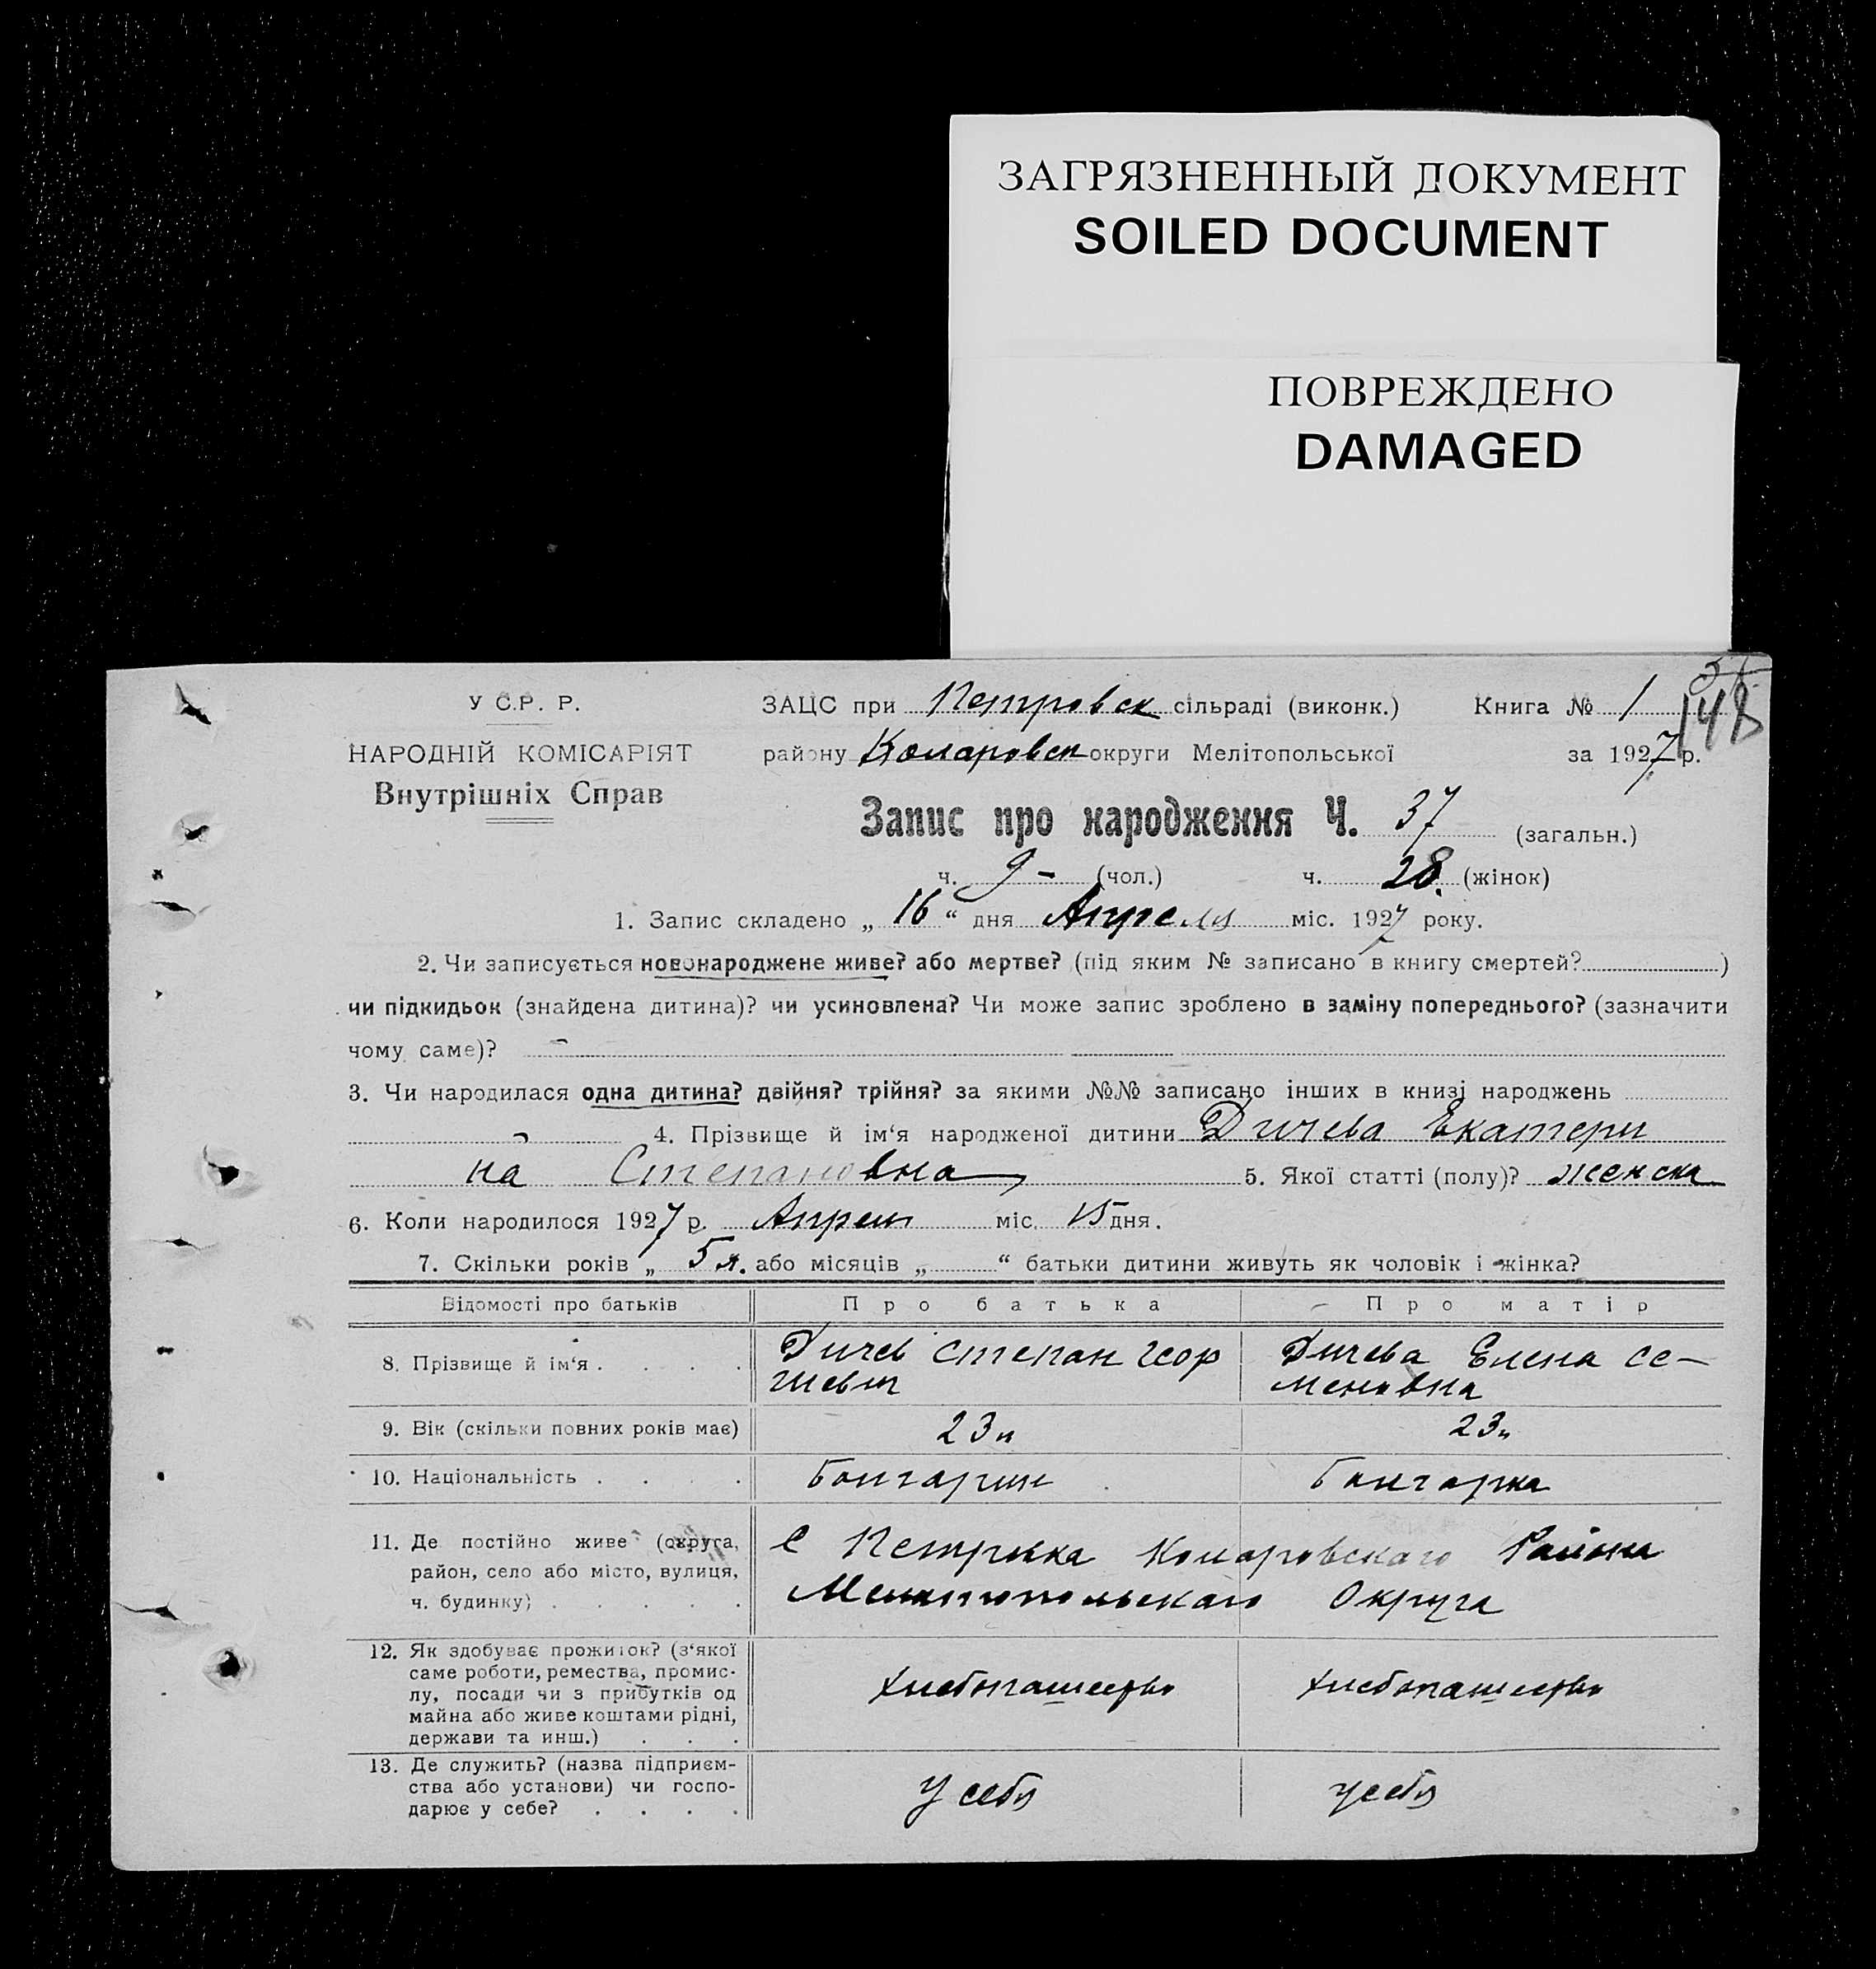 ЗАГРЯЗНЕННЫЙ ДОКУМЕНТ
SOILED DOCUMENT
ПОВРЕЖДЕНО
DAMAGED
148
У С.Р. Р.
НАРОДНІЙ КОМІСАРІЯТ
Внутрішніх Справ
ЗАЦС при Петровск сільраді (виконк.) Книга № 1
району Коларовск округи Мелітопольської за 1927 р.
Запис про народження Ч. 37 (загальн.)
ч. 9 – (чол.) ч. 28. (жінок)
1. Запис складено „ 16 “ дня Апреля міс. 1927 року.
2. Чи записується новонароджене живе? або мертве? (під яким № записано в книгу смертей? )
чи підкидьок (знайдена дитина)? чи усиновлена? Чи може запис зроблено в заміну попереднього? (зазначити
чому саме)?
3. Чи народилася одна дитина? двійня? трійня? за якими №№ записано інших в книзі народжень
4. Прізвище й ім‘я народженої дитини Дичева Екатери
на Степановна 5. Якої статті (полу)? женска
6. Коли народилося 1927 р. Апреля міс. 15 дня.
7. Скільки років „ 5 л. або місяців „ “ батьки дитини живуть як чоловік і жінка?
Відомості про батьків Про батька Про матір
8. Прізвище й ім‘я . . . . Дичев Степан Геор Дичева Елена Се–
гиевич меновна
9. Вік (скільки повних років має) 23 л 23 л
10. Національність . . . . Болгарин Болгарка
11. Де постійно живе (округа,
район, село або місто, вулиця,
ч. будинку) . . . . .
С Петровка Коларовскаго Района
Мелитопольскаго Округа
12. Як здобуває прожиток? (з‘якої
саме роботи, ремества, промис-
лу, посади чи з прибутків од
майна або живе коштами рідні,
держави та инш.) . . .
хлебопашество хлебопашество
13. Де служить? (назва підприєм-
ства або установи) чи госпо-
дарює у себе? . . . .
У себя у себя